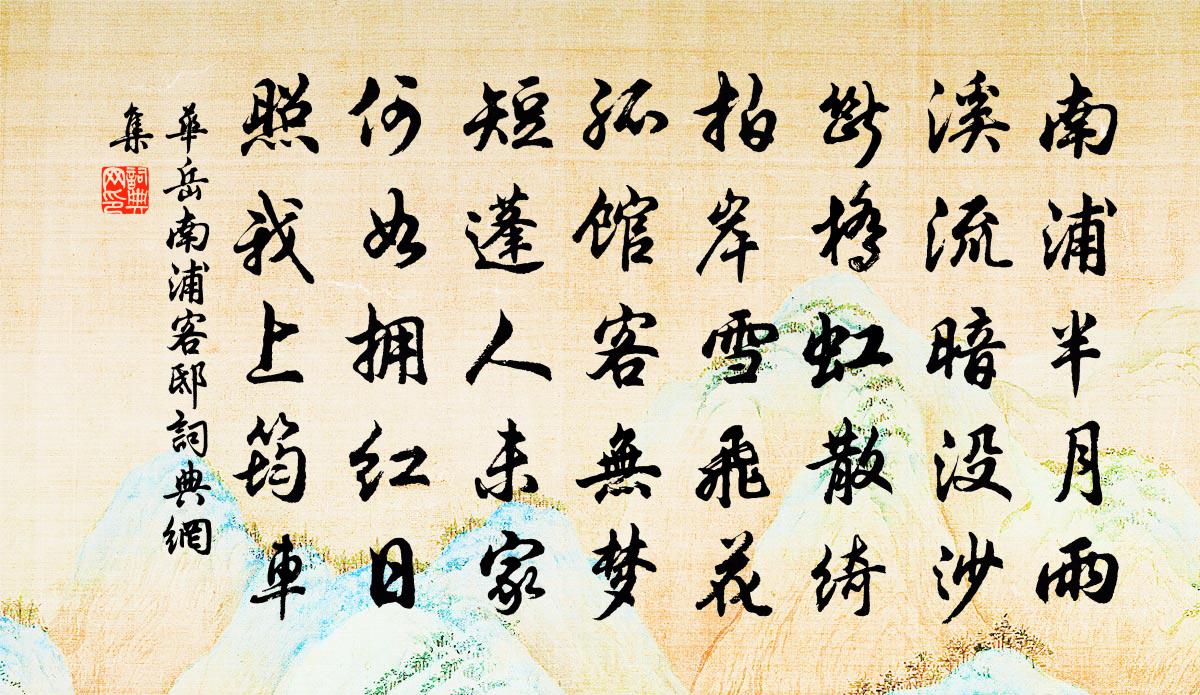 南浦半月雨
溪流暗没沙
断橋虹散绮
拍岸雪飛花
孤馆客無梦
短蓬人未家
何如拥红日
照我上筠車
華岳南浦客邸詞典網
集
詞典
网印